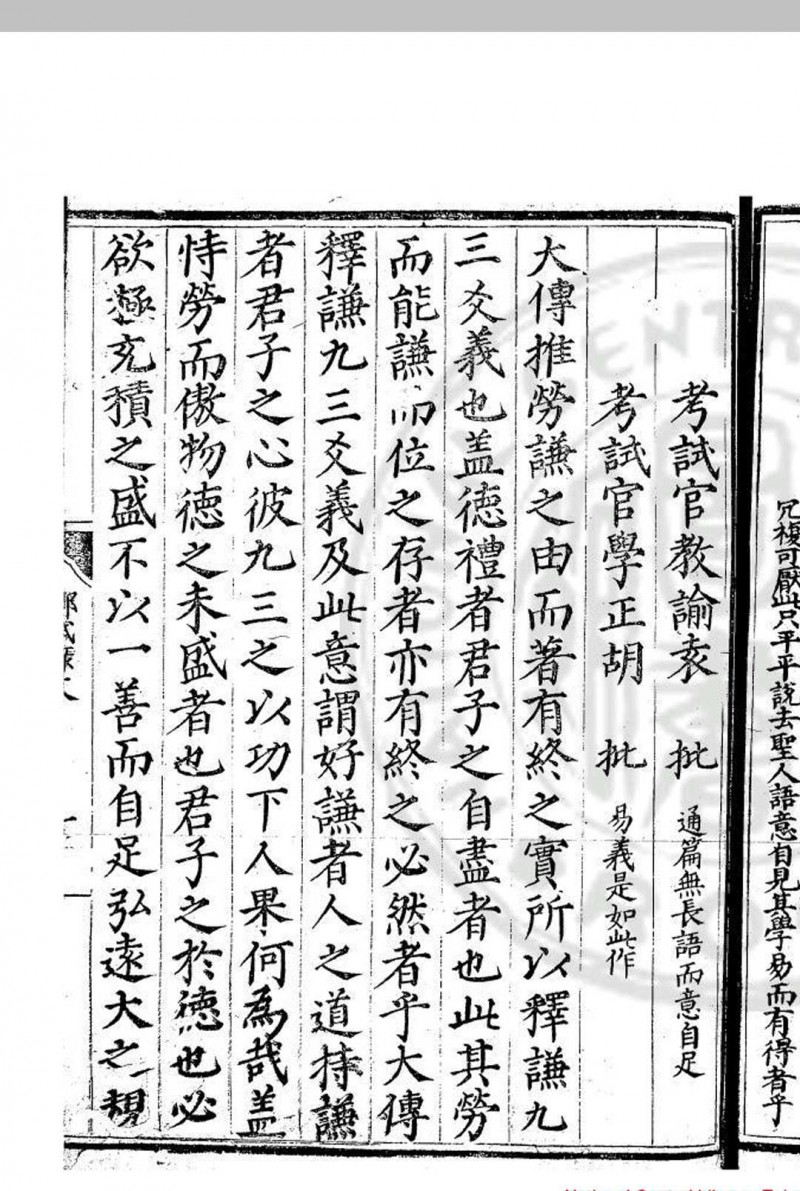 冗複可厭此只平平說去聖人語意自見其學易而有得者乎
考試官教諭袁 批 通篇無長語而意自足
考試官學正胡 批 易義是如此作
大傳推勞謙之由而著有終之實所以釋謙九
三爻義也盖德禮者君子之自盡者也此其勞
而能謙而位之存者亦有終之必然者乎大傳
釋謙九三爻義及此意謂好謙者人之道持謙
者君子之心彼九三之以功下人果何為哉盖
恃勞而傲物德之未盛者也君子之於德也必
欲極充積之盛不以一善而自足弘遠大之規